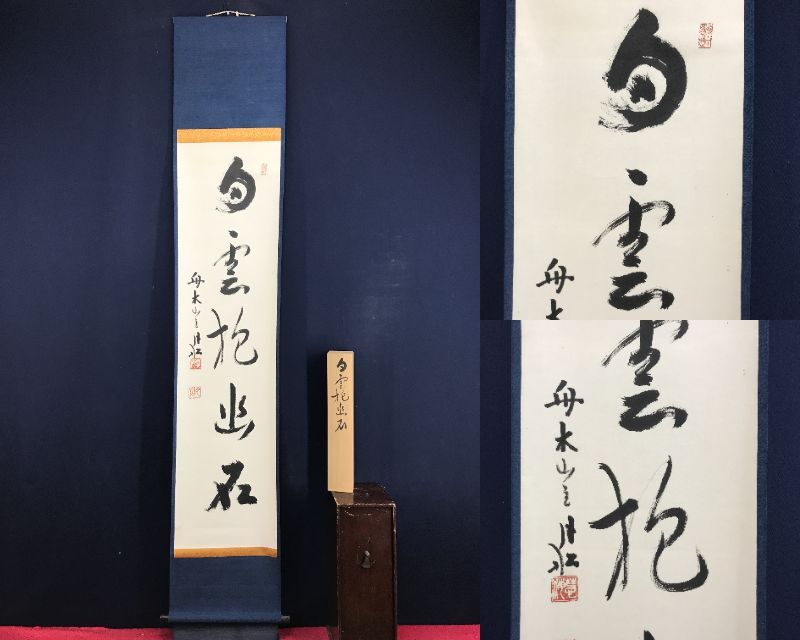 白雲抱幽石
舟木山主
白雲抱幽石
白雲
舟木
雲抱
舟木山主